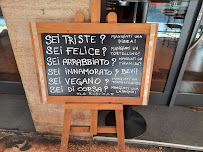 SEI TRISTE? MANGIATI UNA PIZZA!
SEI FELICE? MANGIATI UN TORTELLINO!
SEI ARRABBIATO? MANGIATI UN TIRAMISÙ!
SEI INNAMORATO? BEVI!
SEI VEGANO? MANGIATI UN
SEI DI CORSA? MANGIATI